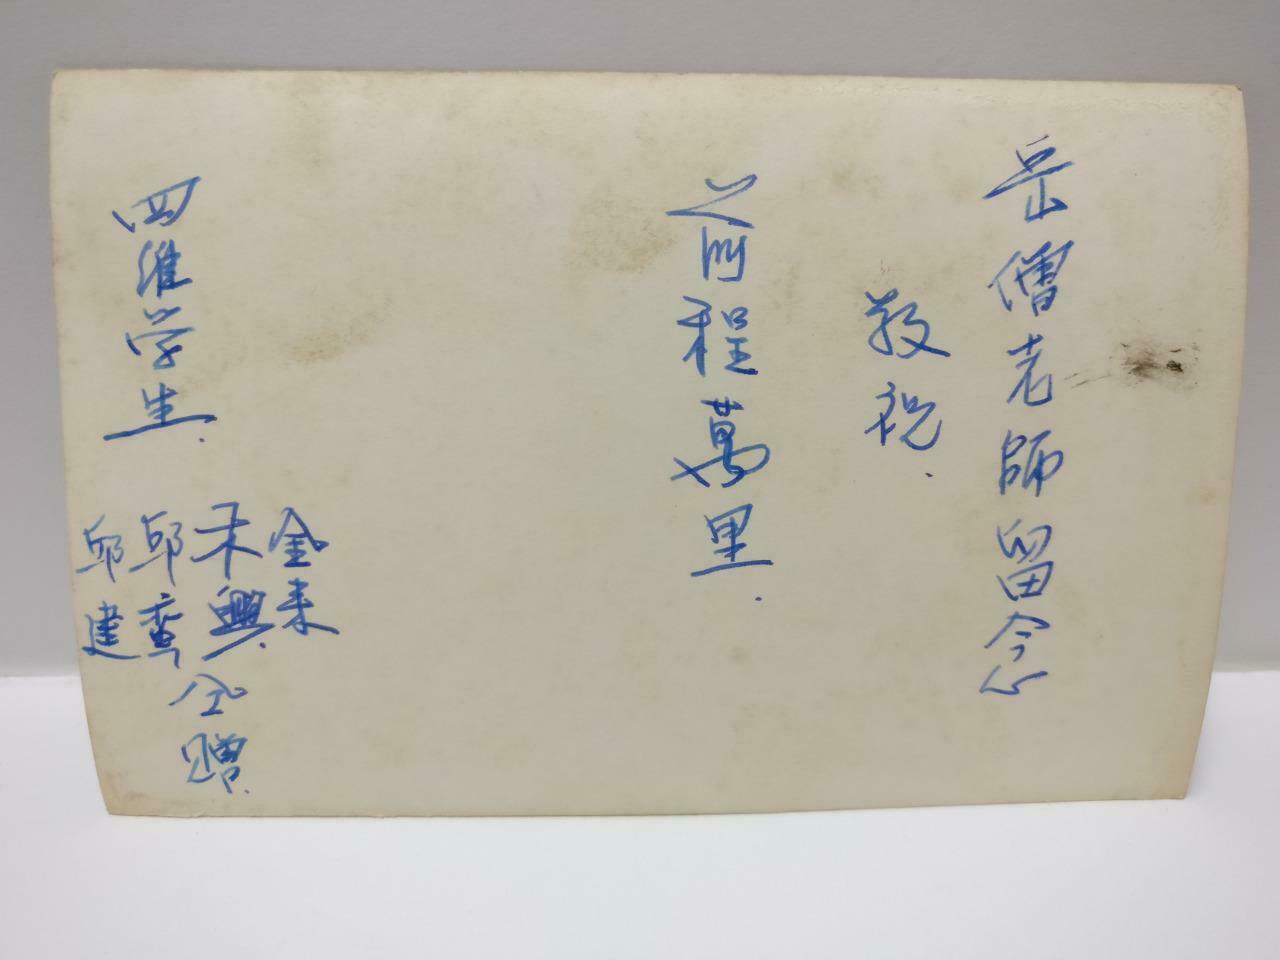 岳僧老師留念
敬祝.
前程萬里.
四维学生.
金来
禾興.
邱蛮
邱建
仝贈.